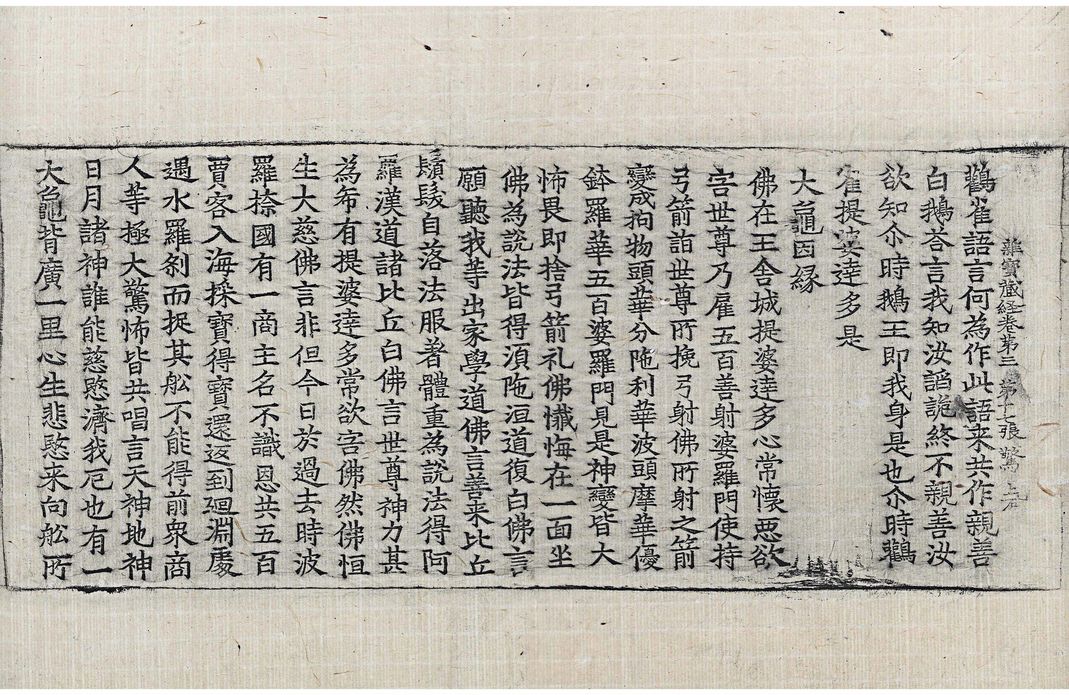 鸛雀語言何為作此語来共作親善
雜寶藏經卷第三　第十張　驚
白鵝荅言我知汝謟詭終不親善汝
欲知尒時鵝王即我身是也尒時鸛
雀提婆達多是
大龜因縁
佛在王舍城提婆達多心常懷惡欲
害世尊乃雇五百善射婆羅門使持
弓箭詣世尊所挽弓射佛所射之箭
變成拘物頭華分陁利華波頭摩華優
鉢羅華五百婆羅門見是神變皆大
怖畏即捨弓箭礼佛懺悔在一面坐
佛為說法皆得湏陁洹道復白佛言
願聽我等出家學道佛言善来比丘
鬚髮自落法服著體重為說法得阿
羅漢道諸比丘白佛言世尊神力甚
為希有提婆達多常欲害佛然佛恒
生大慈佛言非但今日於過去時波
羅捺國有一商主名不識恩共五百
賈客入海採寶得寶還返到廻淵處
遇水羅刹而捉其舩不能得前衆商
人等極大驚怖皆共唱言天神地神
日月諸神誰能慈愍濟我厄也有一
大龜背廣一里心生悲愍来向舩所